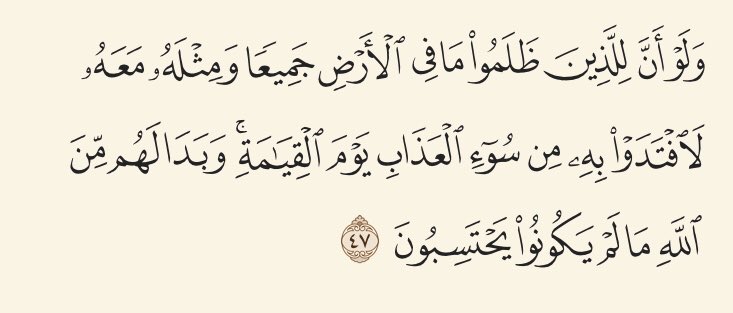 وَلَوۡ أَنَّ لِلَّذِينَ ظَلَمُواْ مَا فِي ٱلۡأَرۡضِ جَمِيعٗا وَمِثۡلَهُۥ مَعَهُۥ
لَٱفۡتَدَوۡاْ بِهِۦ مِن سُوٓءِ ٱلۡعَذَابِ يَوۡمَ ٱلۡقِيَٰمَةِۚ وَبَدَا لَهُم مِّنَ
ٱللَّهِ مَا لَمۡ يَكُونُواْ يَحۡتَسِبُونَ ٤٧